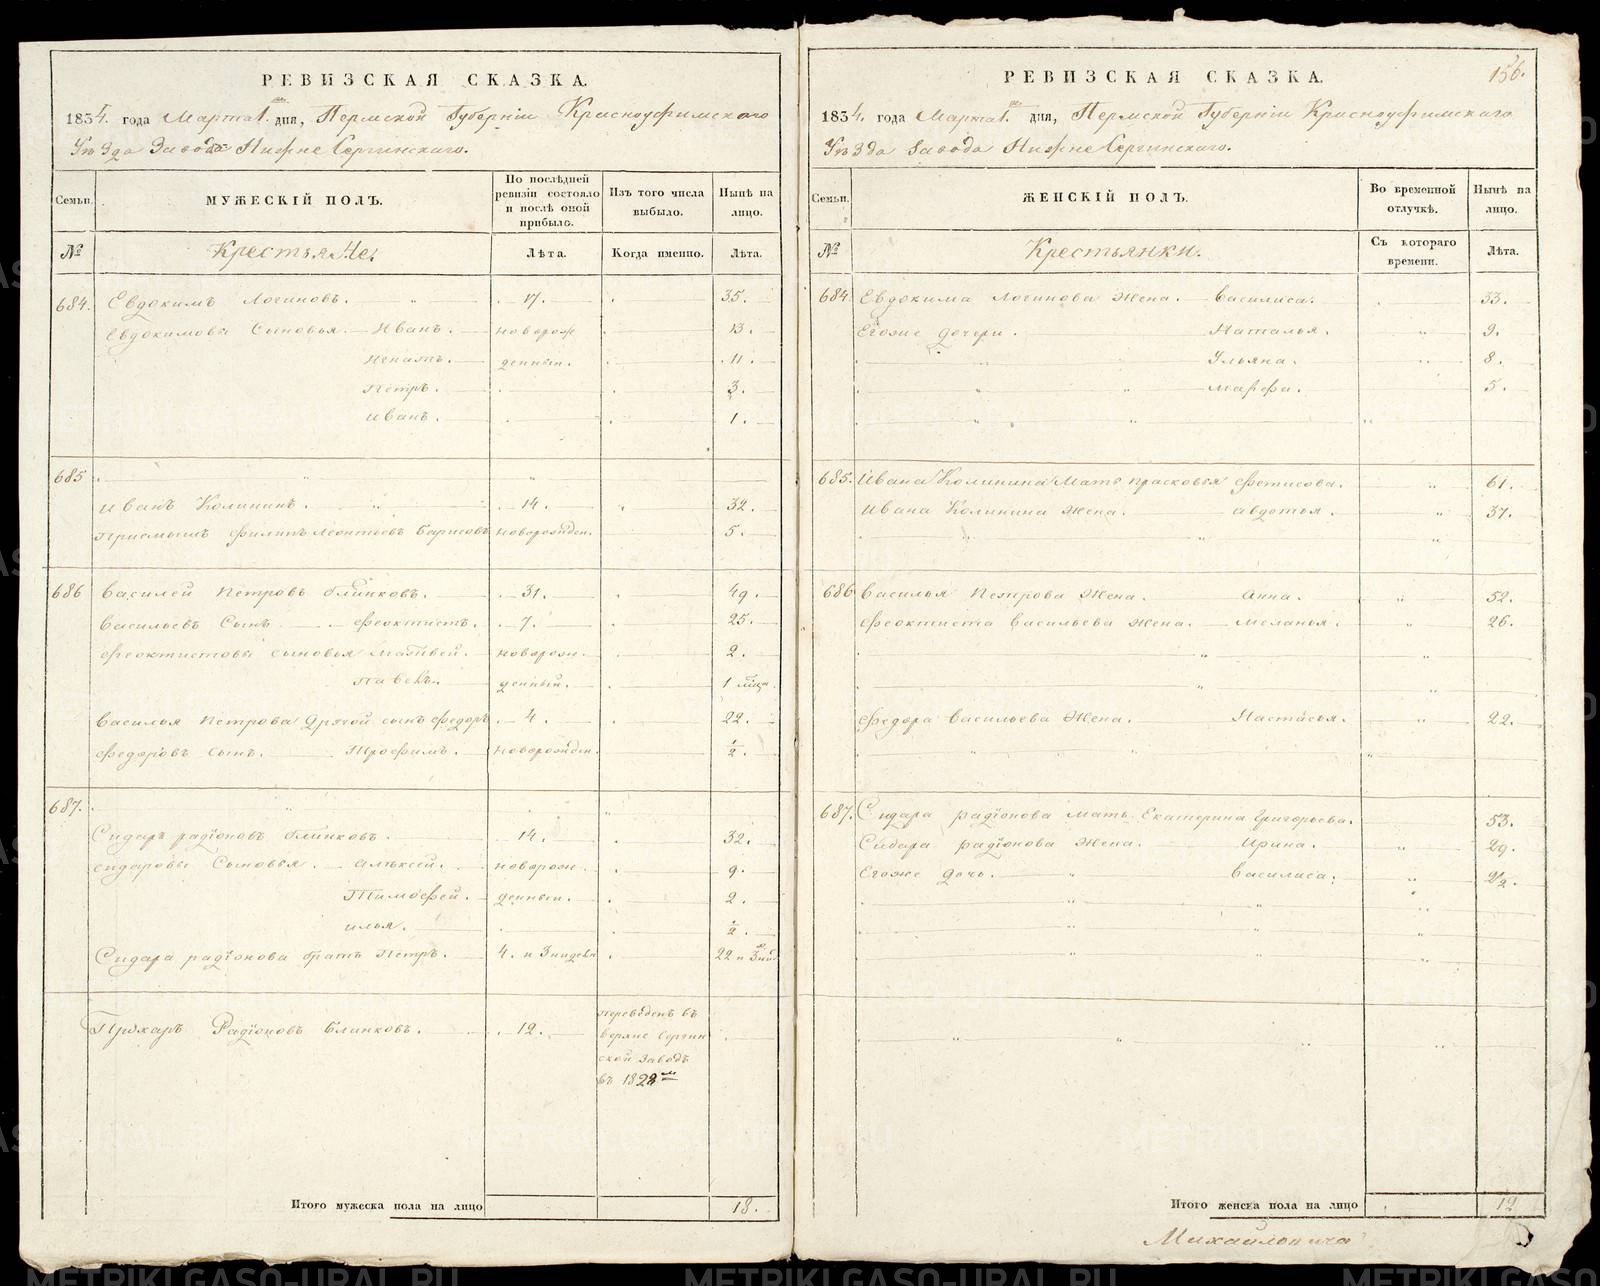 РЕВИЗСКАЯ СКАЗКА.
1834. года Марта 1. дня, Пермской Губерніи Красноуфимскаго
Уѣзда Завода Нижне Сергинскаго.
Семьи.
МУЖЕСКІЙ ПОЛЪ.
По послѣдней ревизіи состояло и послѣ оной прибыло.
Изъ того числа выбыло.
Нынѣ на лицо.
№
Крестьяне.
Лѣта.
Когда именно.
Лѣта.
684. Евдокимъ Логиновъ. 17. 35.
Евдокимовы Сыновья Иванъ. новорож 13.
Игнатъ. денныи. 11.
Петръ. 3.
Иванъ. 1.
685
Иванъ Колининъ. 14. 32.
Приемышъ Филипъ Леонтьевъ Борисовъ новорожден. 5.
686 Василей Петровъ Блинковъ. 31. 49.
Васильевъ Сынъ Феоктистъ. 7. 25.
Феоктистовы сыновья Матвей. новорож. 2.
Павелъ. денныи. 1
Василья Петрова другой сынъ Федоръ 4. 22.
Федоровъ сынъ. Трофимъ. новорожден. ½
687.
Сидаръ радіоновъ блинковъ. 14. 32.
сидаровы Сыновья. Алѣксей. новорож. 9.
Тимофей. денныи. 2.
илья. ½.
Сидара радіонова братъ Петръ. 4. и 3 недели 22 и 3 нед
Прохаръ Радіоновъ Блинковъ. 12. переведенъ въ
верхне Сергин
ской Заводъ
въ 1828 м
Итого мужеска пола на лицо 18.
РЕВИЗСКАЯ СКАЗКА.
156.
1834. года Марта 1. дня, Пермской Губерніи Красноуфимскаго
Уѣзда Завода Нижне Сергинскаго.
Семьи.
ЖЕНСКІЙ ПОЛЪ.
Во временной отлучкѣ.
Нынѣ на лицо.
№
Крестьянки.
Съ котораго времени.
Лѣта.
684 Евдокима Логинова Жена. Василиса. 33.
Егоже дочери. Наталья. 9.
Ульяна. 8.
Марфа. 5.
685. Ивана Колинина Мать прасковья фетисова. 61.
Ивана Колинина Жена. авдотья. 37.
686 Василья Петрова Жена. Анна. 52.
Феоктиста Васильева Жена. Меланья. 26.
Федора Васильева Жена. Настасья. 22.
687. Сидара радіонова мать Екатерина Григорьева. 53.
Сидара радіонова Жена. Ирина. 29.
Егоже Дочь. Василиса.
Итого женска пола на лицо 12
Михайловича
METRIKI.GASO-URAL.RU